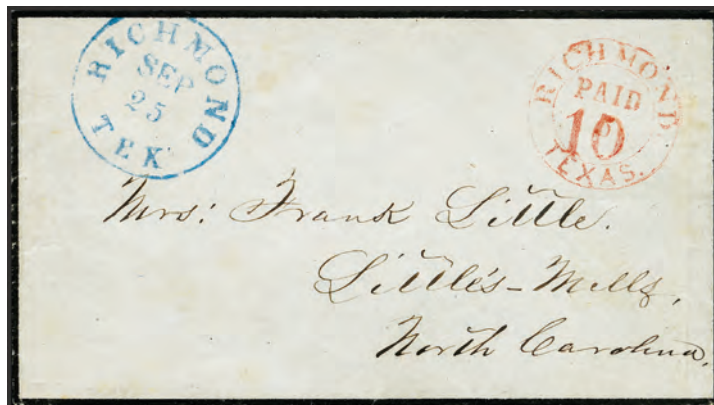 RICHMOND
SEP
25
TEX
RICHMOND
PAID
10
TEXAS.
Mrs: Frank Little.
Little's-Mills,
North Carolina,